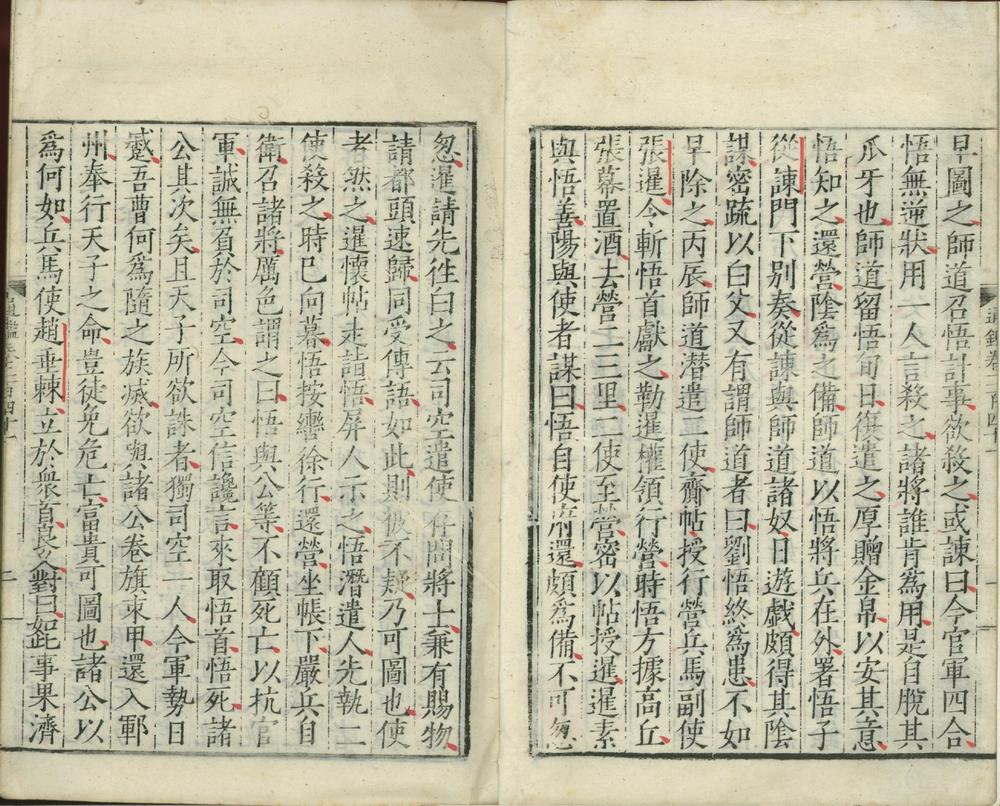 早圖之師道召悟計事欲殺之或諫曰今官軍四合
悟無逆狀用一人言殺之諸將誰肯為用是自脫其
爪牙也師道留悟旬日復遣之厚贈金帛以安其意
悟知之還營陰為之備師道以悟將兵在外署悟子
從諫門下别奏從諫與師道諸奴日遊戱頗得其陰
謀密疏以白父又有謂師道者曰劉悟終為患不如
早除之丙辰師道潜遣二使齎帖授行營兵馬副使
張暹令斬悟首獻之勒暹權領行營時悟方據高丘
張幕置酒去營二三里二使至營密以帖授暹暹素
與悟善陽與使者謀曰悟自使府還頗為備不可怱
怱暹請先往白之云司空遣使存問將士兼有賜物
請都頭速歸同受傳語如此則彼不疑乃可圖也使
者然之暹懷帖走詣悟屏人示之悟潛遣人先執二
使殺之時已向暮悟按轡徐行還營坐帳下嚴兵自
衛召諸將厲色謂之曰悟與公等不顧死亡以抗官
軍誠無負於司空今司空信讒言來取悟首悟死諸
公其次矣且天子所欲誅者獨司空一人今軍勢日
蹙吾曹何為隨之族滅欲與諸公卷旗束甲還入鄆
州奉行天子之命豈徒免危亡富貴可圖也諸公以
為何如兵馬使趙垂棘立於衆首良久對曰如此事果濟